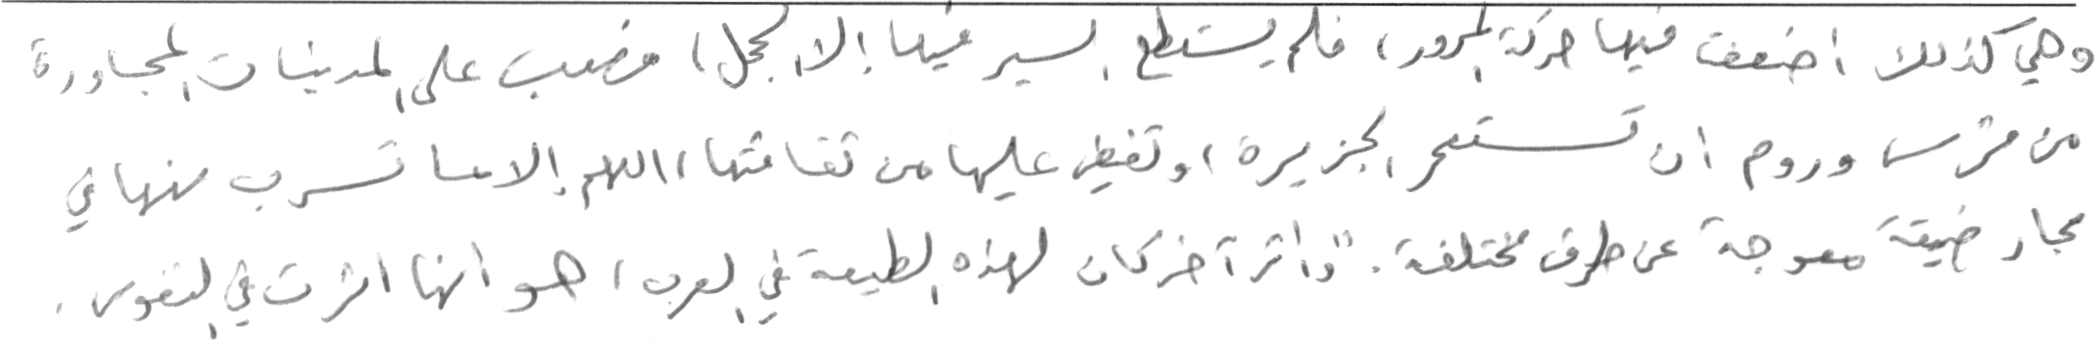 وهي كذلك اضعفت فيها حركة المرور، فلم يستطع السير فيها إلا الجمل، وصعب على المدنيات المجاورة
من فرس وروم ان تستعمر الجزيرة، وتفيض عليها من ثقافتها، اللهم إلا ما تسرب منها في
مجار ضيقة معوجة عن طرق مختلفة. "وأثر آخر كان لهذه الطبيعة في العرب، هو أنها اثرت في النفوس.